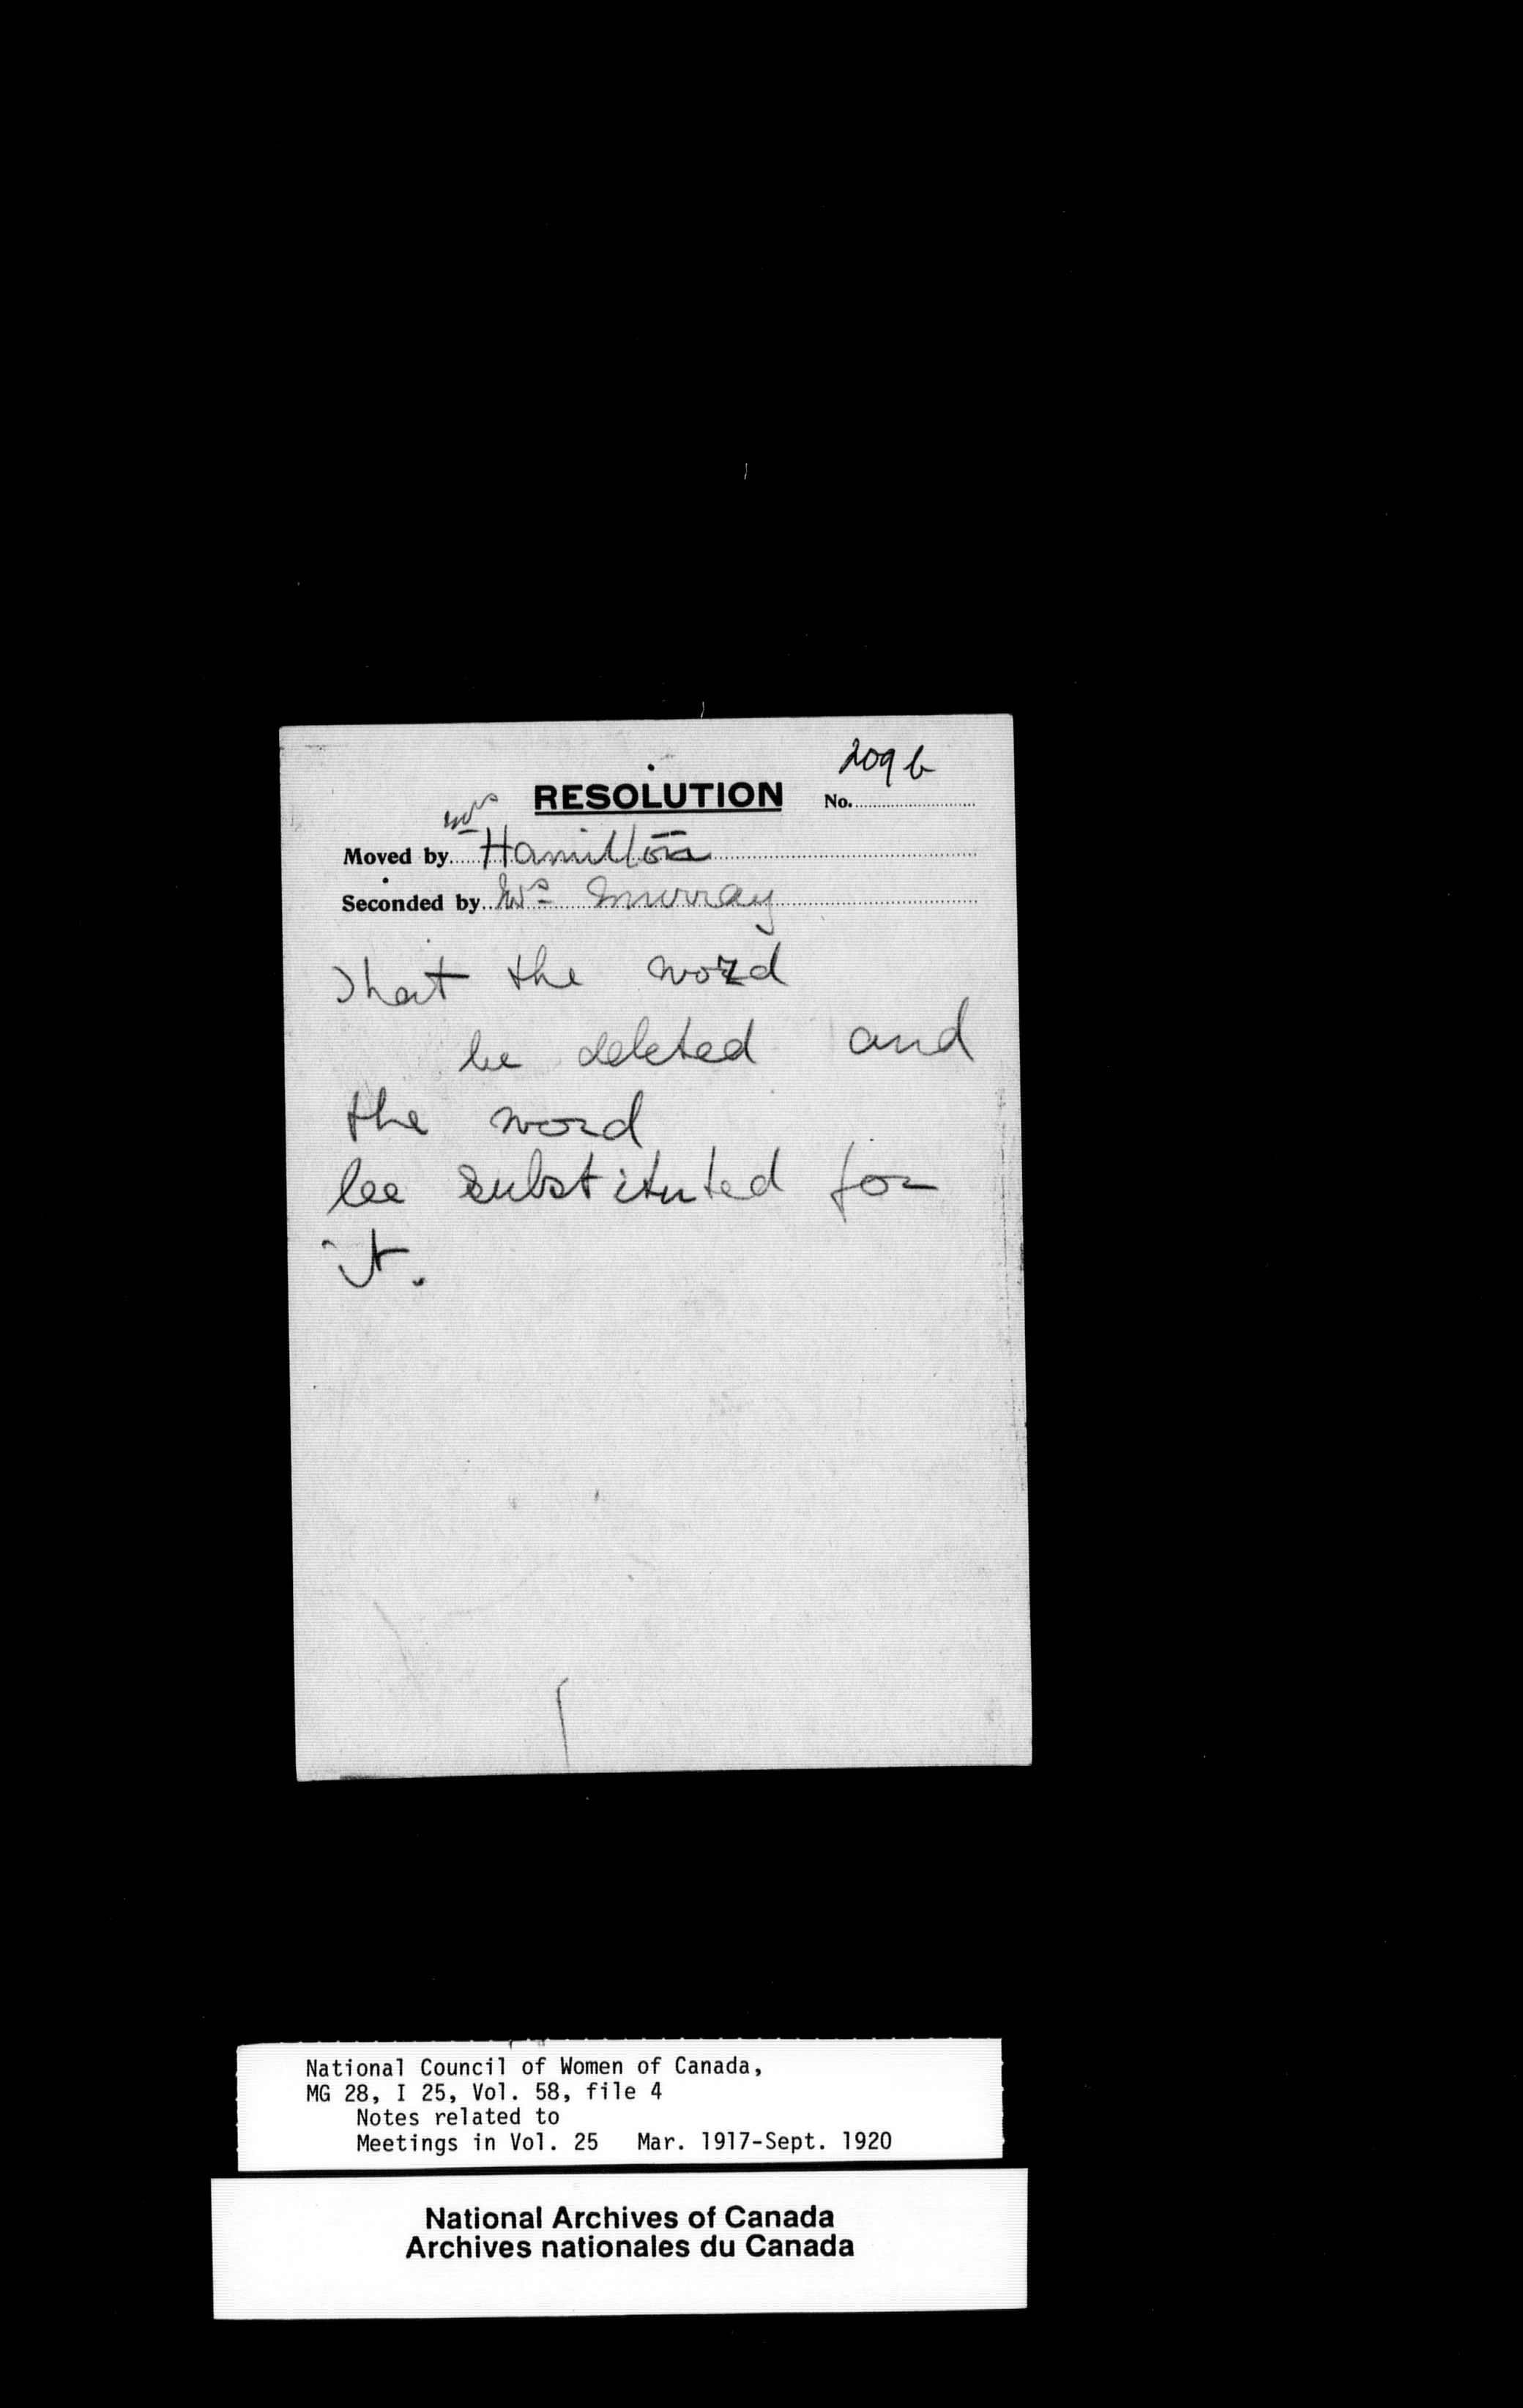 209 b
RESOLUTION No.
Moved by Mrs Hamilton
Seconded by Mrs Murray
That the word
be deleted and
the word
be substituted for
it.
National Council of Women of Canada,
MG 28, I 25, Vol. 58, file 4
Notes related to
Meetings in Vol. 25 Mar. 1917-Sept. 1920
National Archives of Canada
Archives nationales du Canada